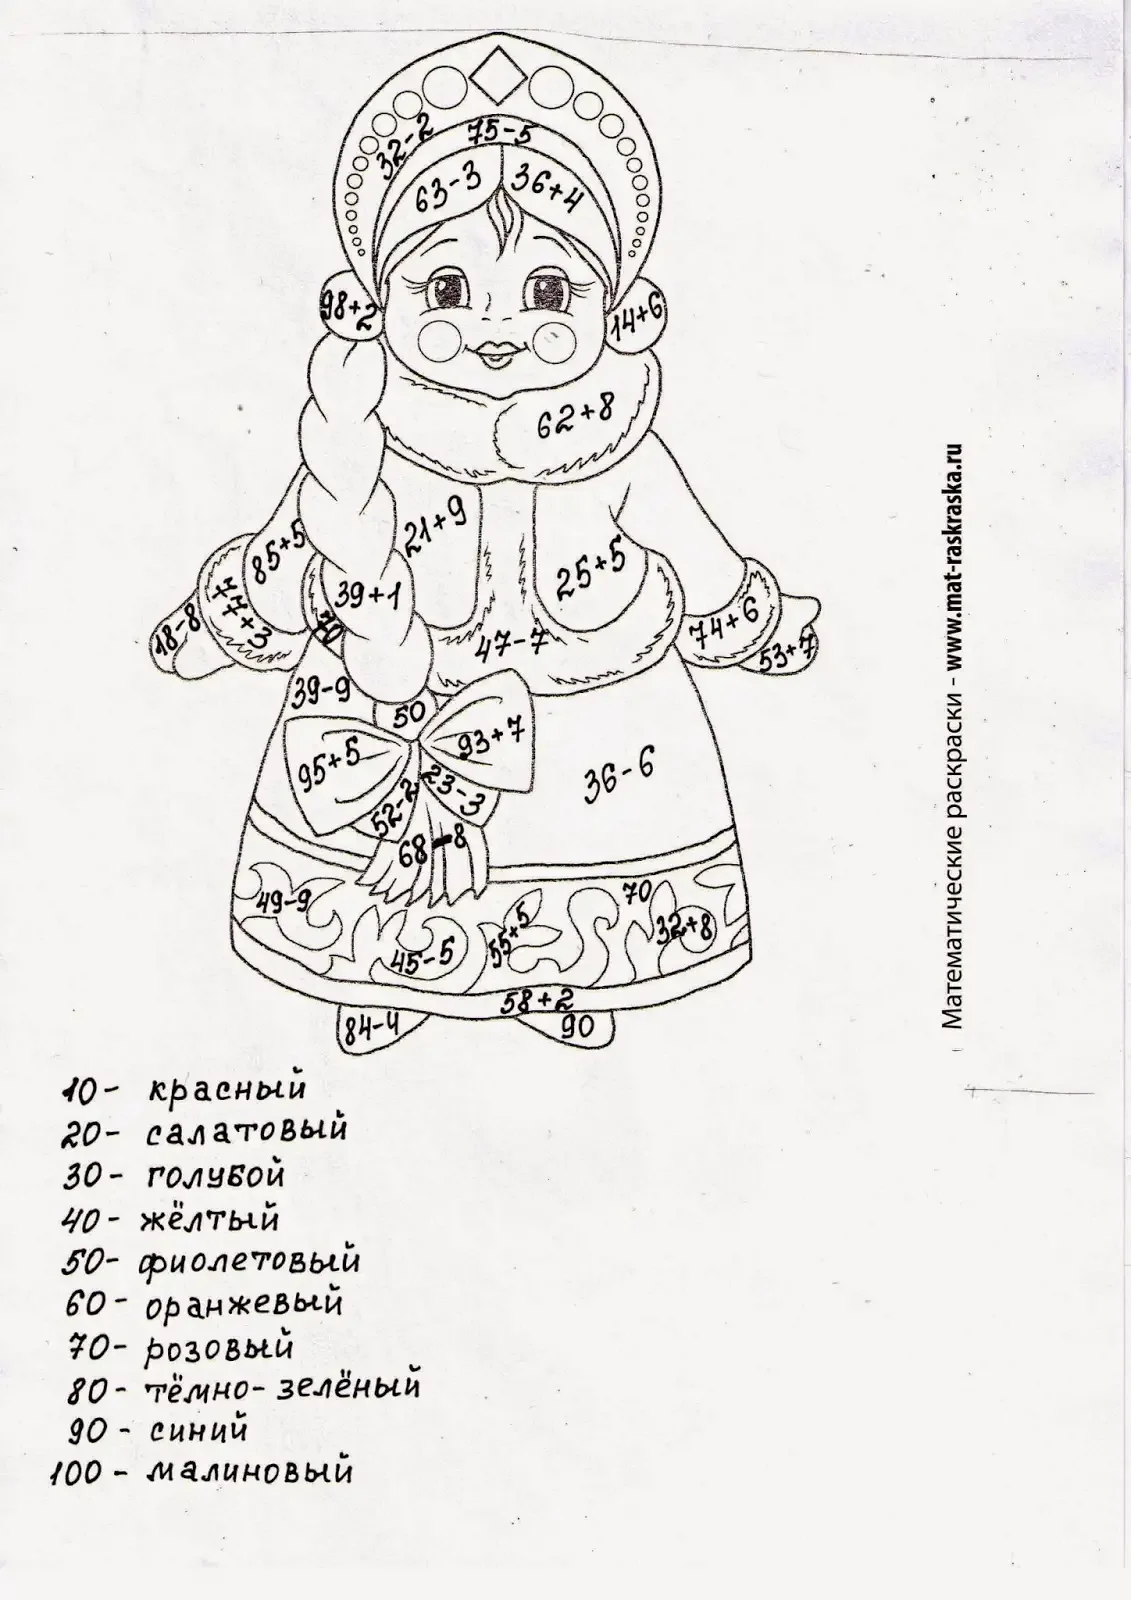 32-2
75-5
63-3
36+4
98+2
14+6
62+8
21+9
85+5
25+5
39+1
77+3
70
18-8
74+6
47-7
53+7
39-9
50
93+7
95+5
36-6
23-3
52-2
68-8
49-9
70
55+5
32+8
45-5
58+2
84-4
90
10- красный
20- салатовый
30- голубой
40- жёлтый
50- фиолетовый
60- оранжевый
70- розовый
80- тёмно-зелёный
90- синий
100- малиновый
Математические раскраски - www.mat-raskraska.ru